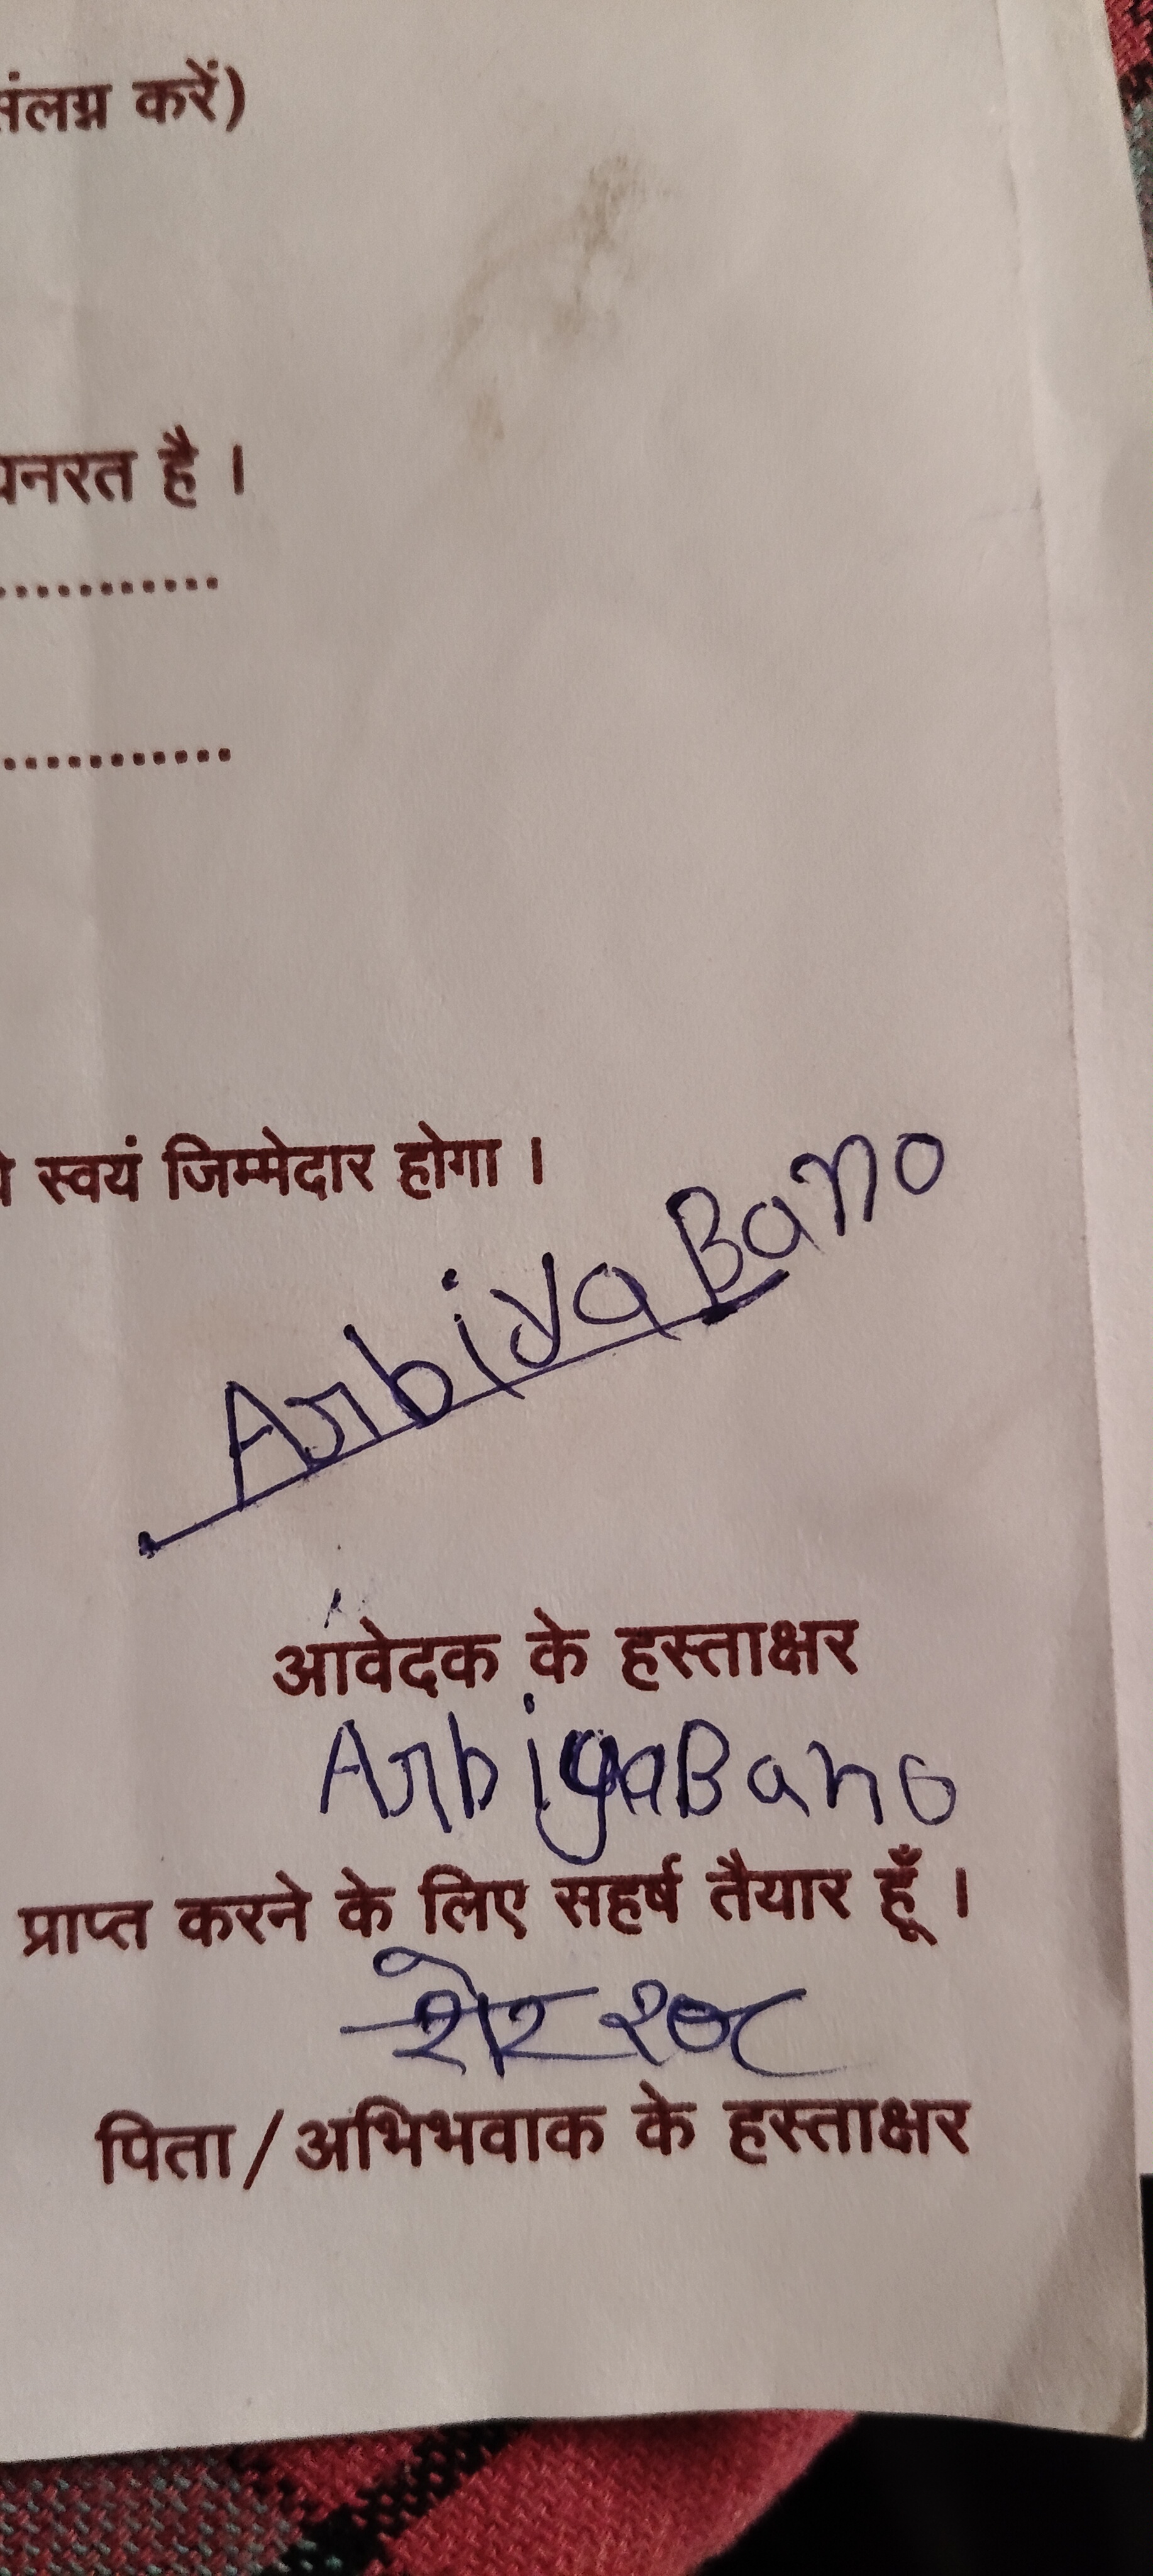 संलग्न करें)
यनरत है ।
............
............
स्वयं जिम्मेदार होगा ।
Arbiya Bano
आवेदक के हस्ताक्षर
Arbiya Bano
प्राप्त करने के लिए सहर्ष तैयार हूँ ।
शेर
पिता/अभिभवाक के हस्ताक्षर